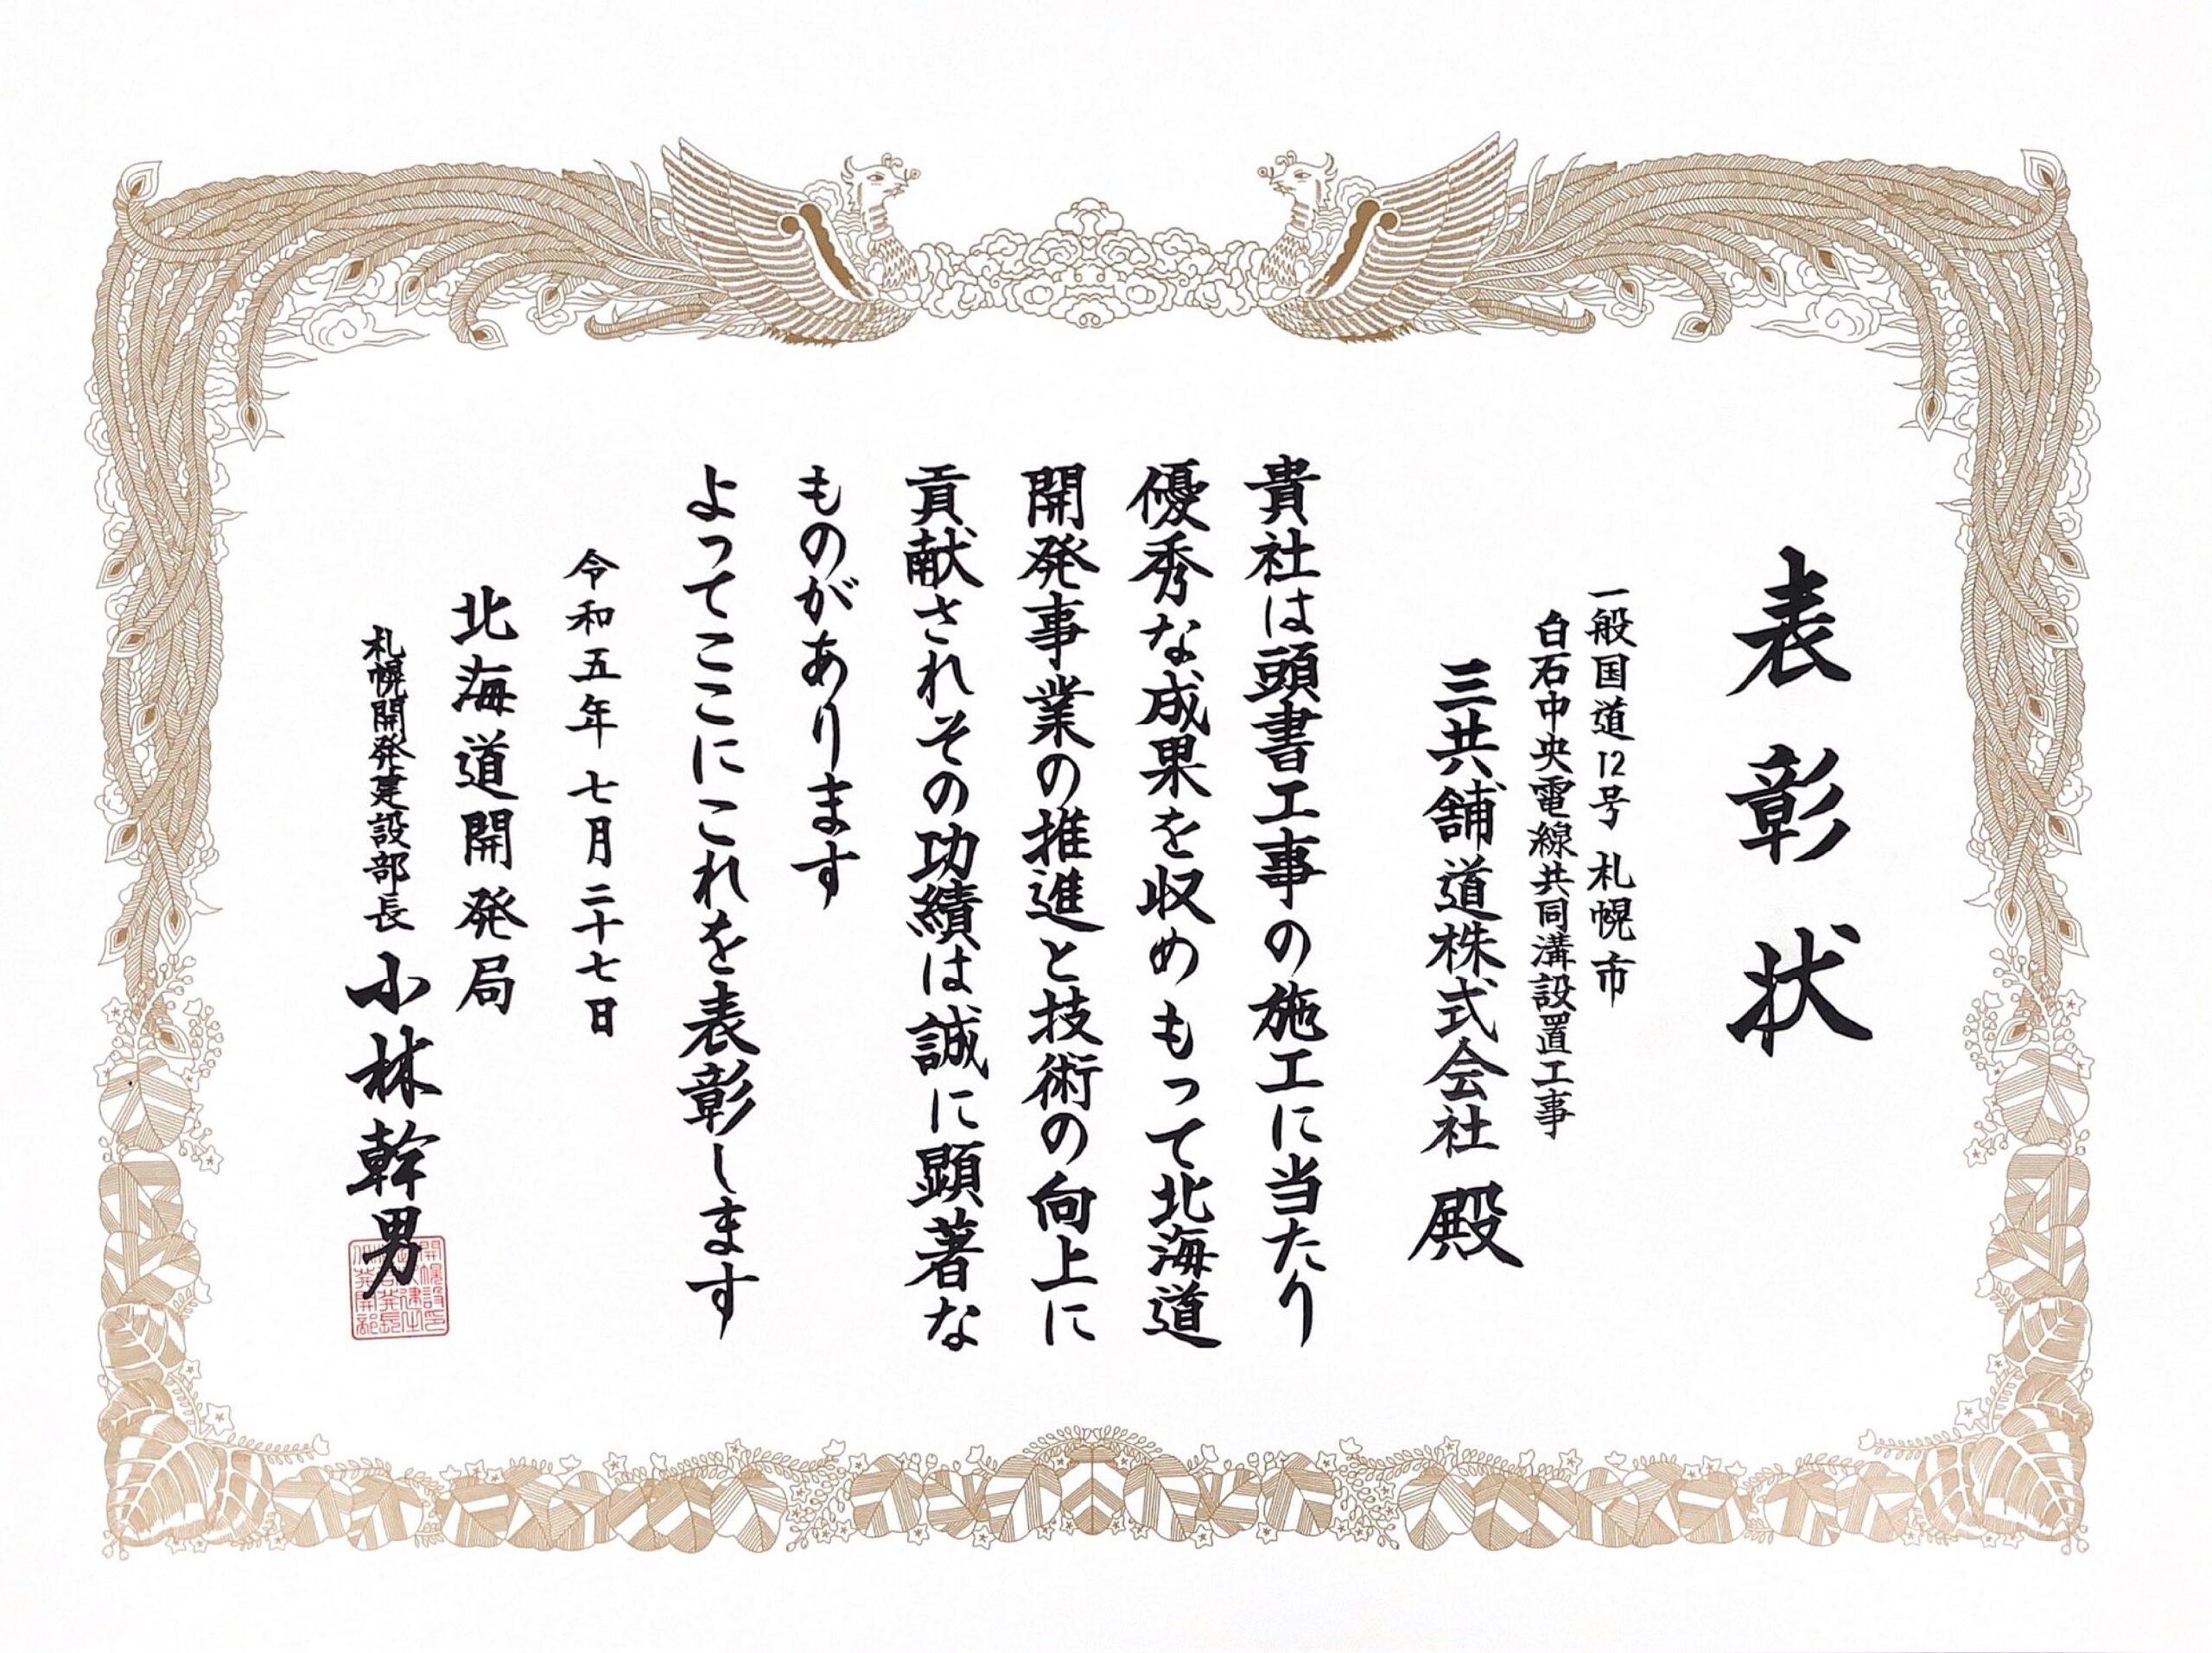 表彰状
一般国道12号 札幌市
白石中央電線共同溝設置工事
三共舗道株式会社 殿
貴社は頭書工事の施工に当たり
優秀な成果を収めもって北海道
開発事業の推進と技術の向上に
貢献されその功績は誠に顕著な
ものがあります
よってここにこれを表彰します
令和五年七月二十七日
北海道開発局
札幌開発建設部長 小林幹男